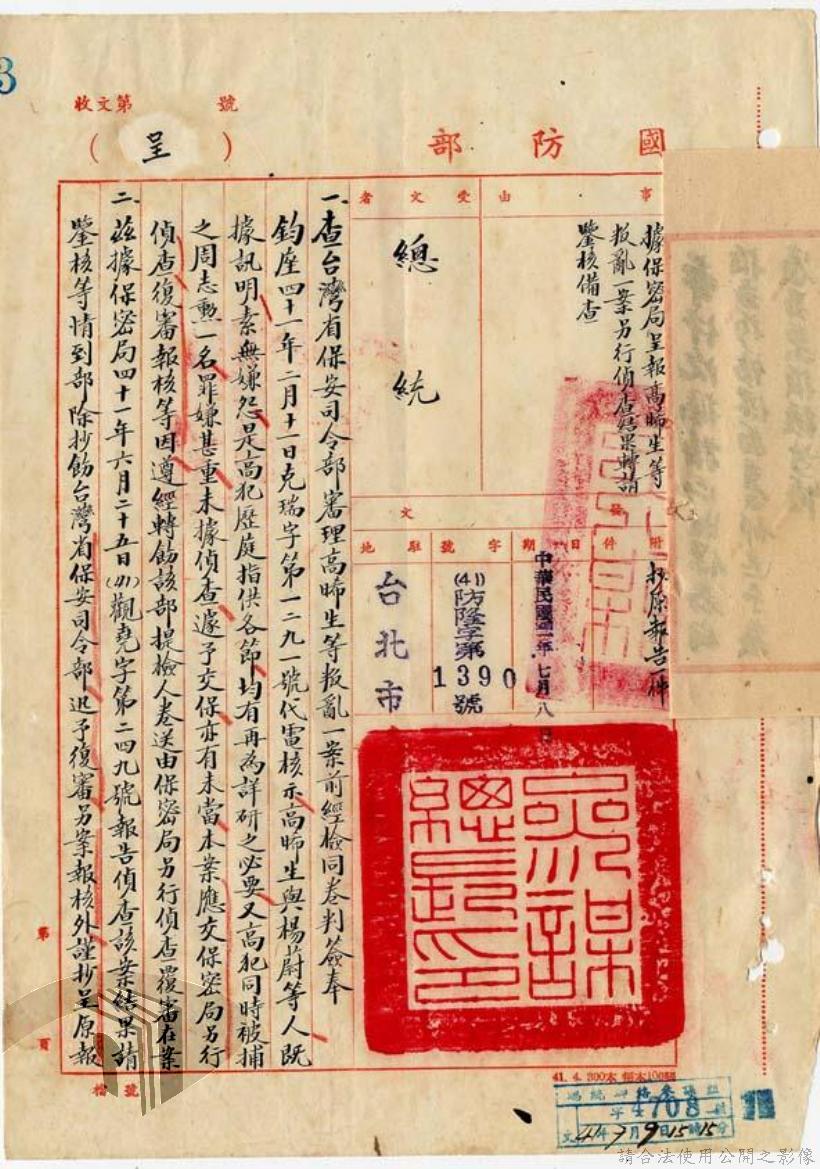 3
收文第　　號
國防部
（呈）
事由
據保密局呈報高晞生等
叛亂一案另行偵查結果轉請
鑒核備查
受文者
總統
附件
抄原報告一件
發文
日期
中華民國四十一年七月八日
字號
(41)防隆字第
1390號
駐地
台北市
參謀
總長印
一、查台灣省保安司令部審理高晞生等叛亂一案前經檢同卷判簽奉
鈞座四十一年二月十一日克瑞字第一二九一號代電核示高晞生與楊蔚等人既
據訊明素無嫌怨是高犯歷庭指供各節均有再為詳研之必要又高犯同時被捕
之周志勳一名罪嫌甚重未據偵查遽予交保亦有未當本案應交保密局另行
偵查復審報核等因遵經轉飭該部提檢人卷送由保密局另行偵查覆審在案
二、茲據保密局四十一年六月二十五日(41)觀堯字第二四九號報告偵查該案結果請
鑒核等情到部除抄飭台灣省保安司令部迅予復審另案報核外謹抄呈原報
第　　頁
檔號
41. 4. 300本 每本100頁
字4708號
文41年7月9日15時15分
請合法使用公開之影像